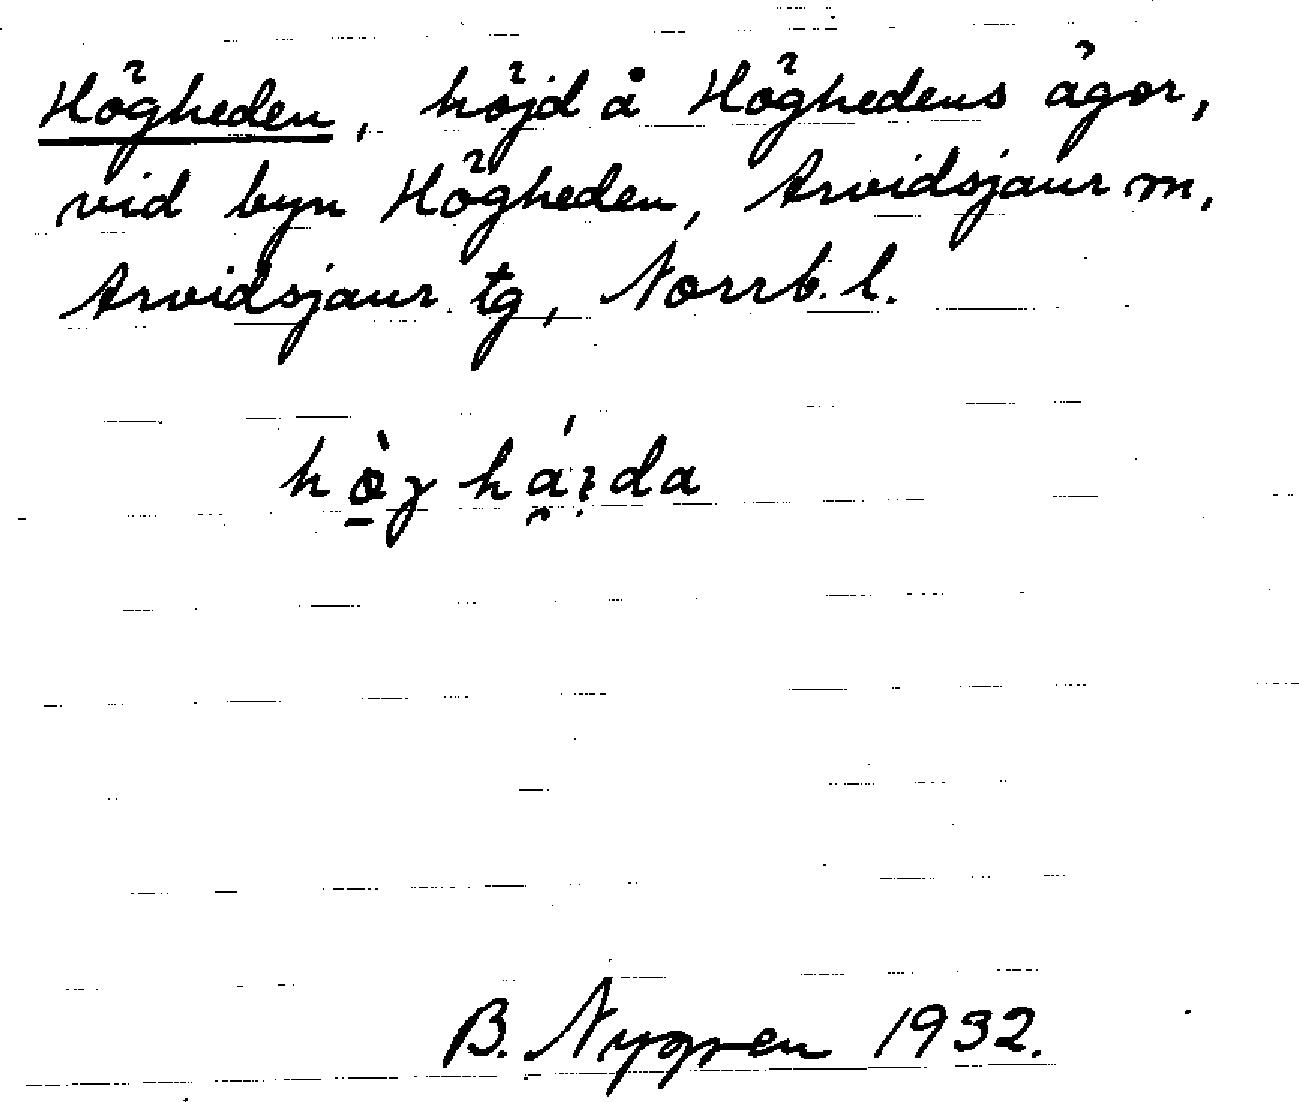 Högheden, höjd å Höghedens ägor,
vid byn Högheden, Arvidsjaur sn,
Arvidsjaur tg, Norrb. l.
B. Nygren 1932.